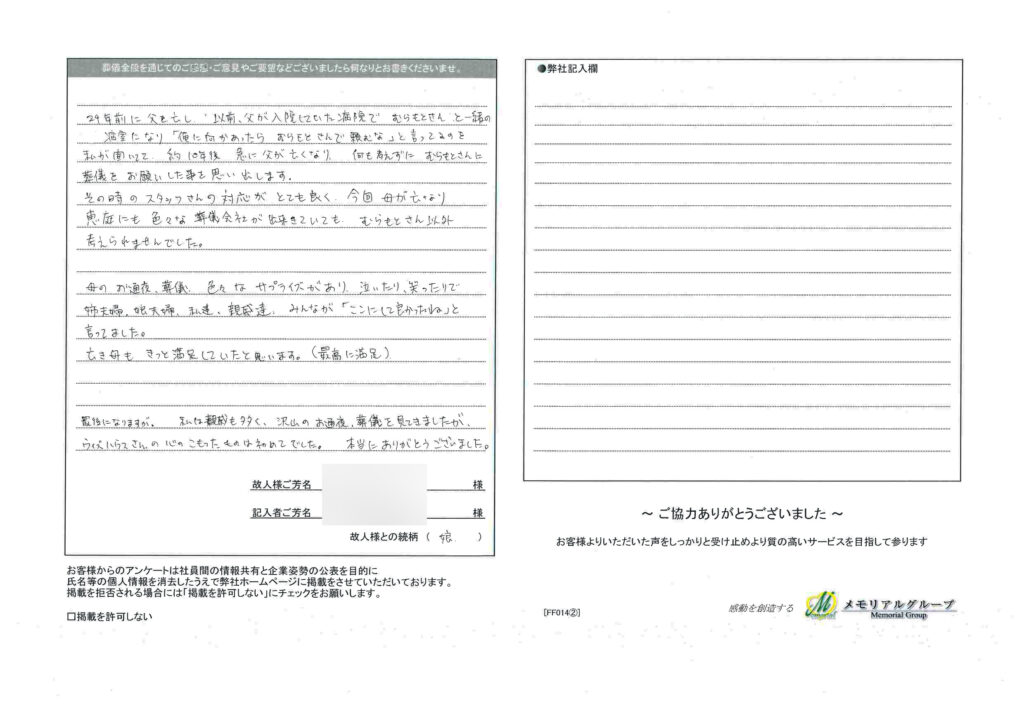 葬儀全般を通じてのご感想・ご意見やご要望などございましたら何なりとお書きくださいませ。
29年前に父を亡し、以前、父が入院していた病院で むらもとさん と一諸の
病室になり「俺に何かあったら むらもとさんで頼むな」と言ってるのを
私が聞いて、約10年後 急に父が亡くなり、何も考えずに むらもとさんに
葬儀を お願いした事を思い出します。
その時の スタッフさんの 対応が とても良く、今回 母が亡くなり
恵庭にも 色々な 葬儀会社が出来きていても、むらもとさん以外
考えられませんでした。
母の お通夜、葬儀、色々な サプライズがあり、泣いたり、笑ったりで
姉夫婦、娘夫婦、私達、親戚達、みんなが「ここにして良かったね」と
言ってました。
亡き母も きっと満足していたと思います。(最高に満足)
最後になりますが、 私は親戚も多く、沢山の お通夜、葬儀を見てきましたが、
ウィズハウスさんの 心のこもったものは初めてでした。 本当にありがとうございました。
故人様ご芳名 様
記入者ご芳名 様
故人様との続柄 ( 娘 )
お客様からのアンケートは社員間の情報共有と企業姿勢の公表を目的に
氏名等の個人情報を消去したうえで弊社ホームページに掲載をさせていただいております。
掲載を拒否される場合には「掲載を許可しない」にチェックをお願いします。
□掲載を許可しない
●弊社記入欄
～ ご協力ありがとうございました ～
お客様よりいただいた声をしっかりと受け止めより質の高いサービスを目指して参ります
[FF014②]
感動を創造する
メモリアルグループ
Memorial Group